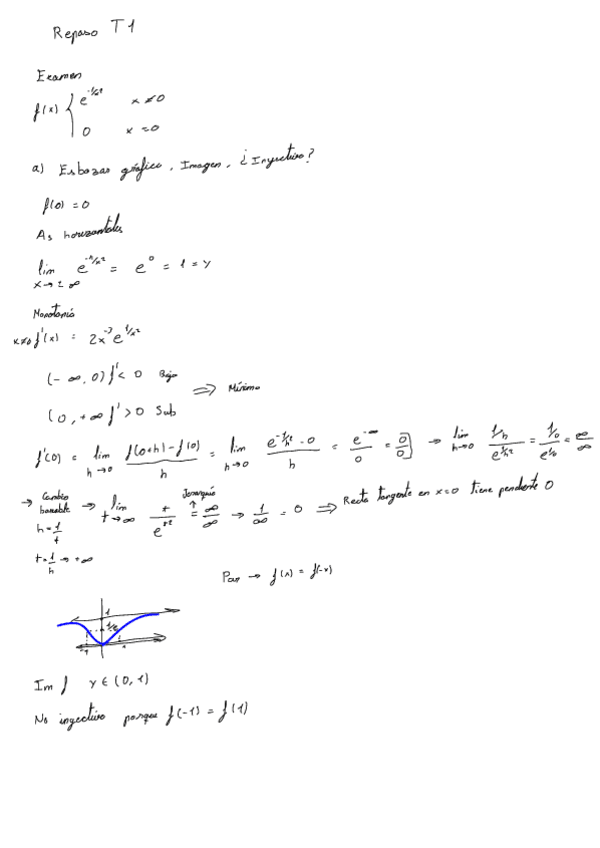 Repaso T1
Examen
f(x) { e^{-1/x²} x ≠ 0
0 x = 0
a) Esbozar gráfica, Imagen, ¿Inyectiva?
f(0) = 0
As horizontales
lim x→±∞ e^{-1/x²} = e^0 = 1 = y
Monotonía
x≠0 f'(x) = 2x^{-3} e^{-1/x²}
(-∞, 0) f' < 0 Baja
⇒ Mínimo
(0, +∞ f' > 0 Sub
f'(0) = lim h→0 f(0+h) - f(0) / h = lim h→0 e^{-1/h²} - 0 / h = e^{-∞} / 0 = [0/0] → lim h→0 1/h / e^{1/h²} = 1/0 / e^{1/0} = ∞/∞
→ Cambio variable → lim t→∞ t / e^{t²} = ∞/∞ Jerarquía → 1/∞ = 0 ⇒ Recta tangente en x=0 tiene pendiente 0
h = 1/t
t = 1/h → +∞
Par → f(x) = f(-x)
1
1/e
-1 1
Im f y ∈ (0, 1)
No inyectiva porque f(-1) = f(1)